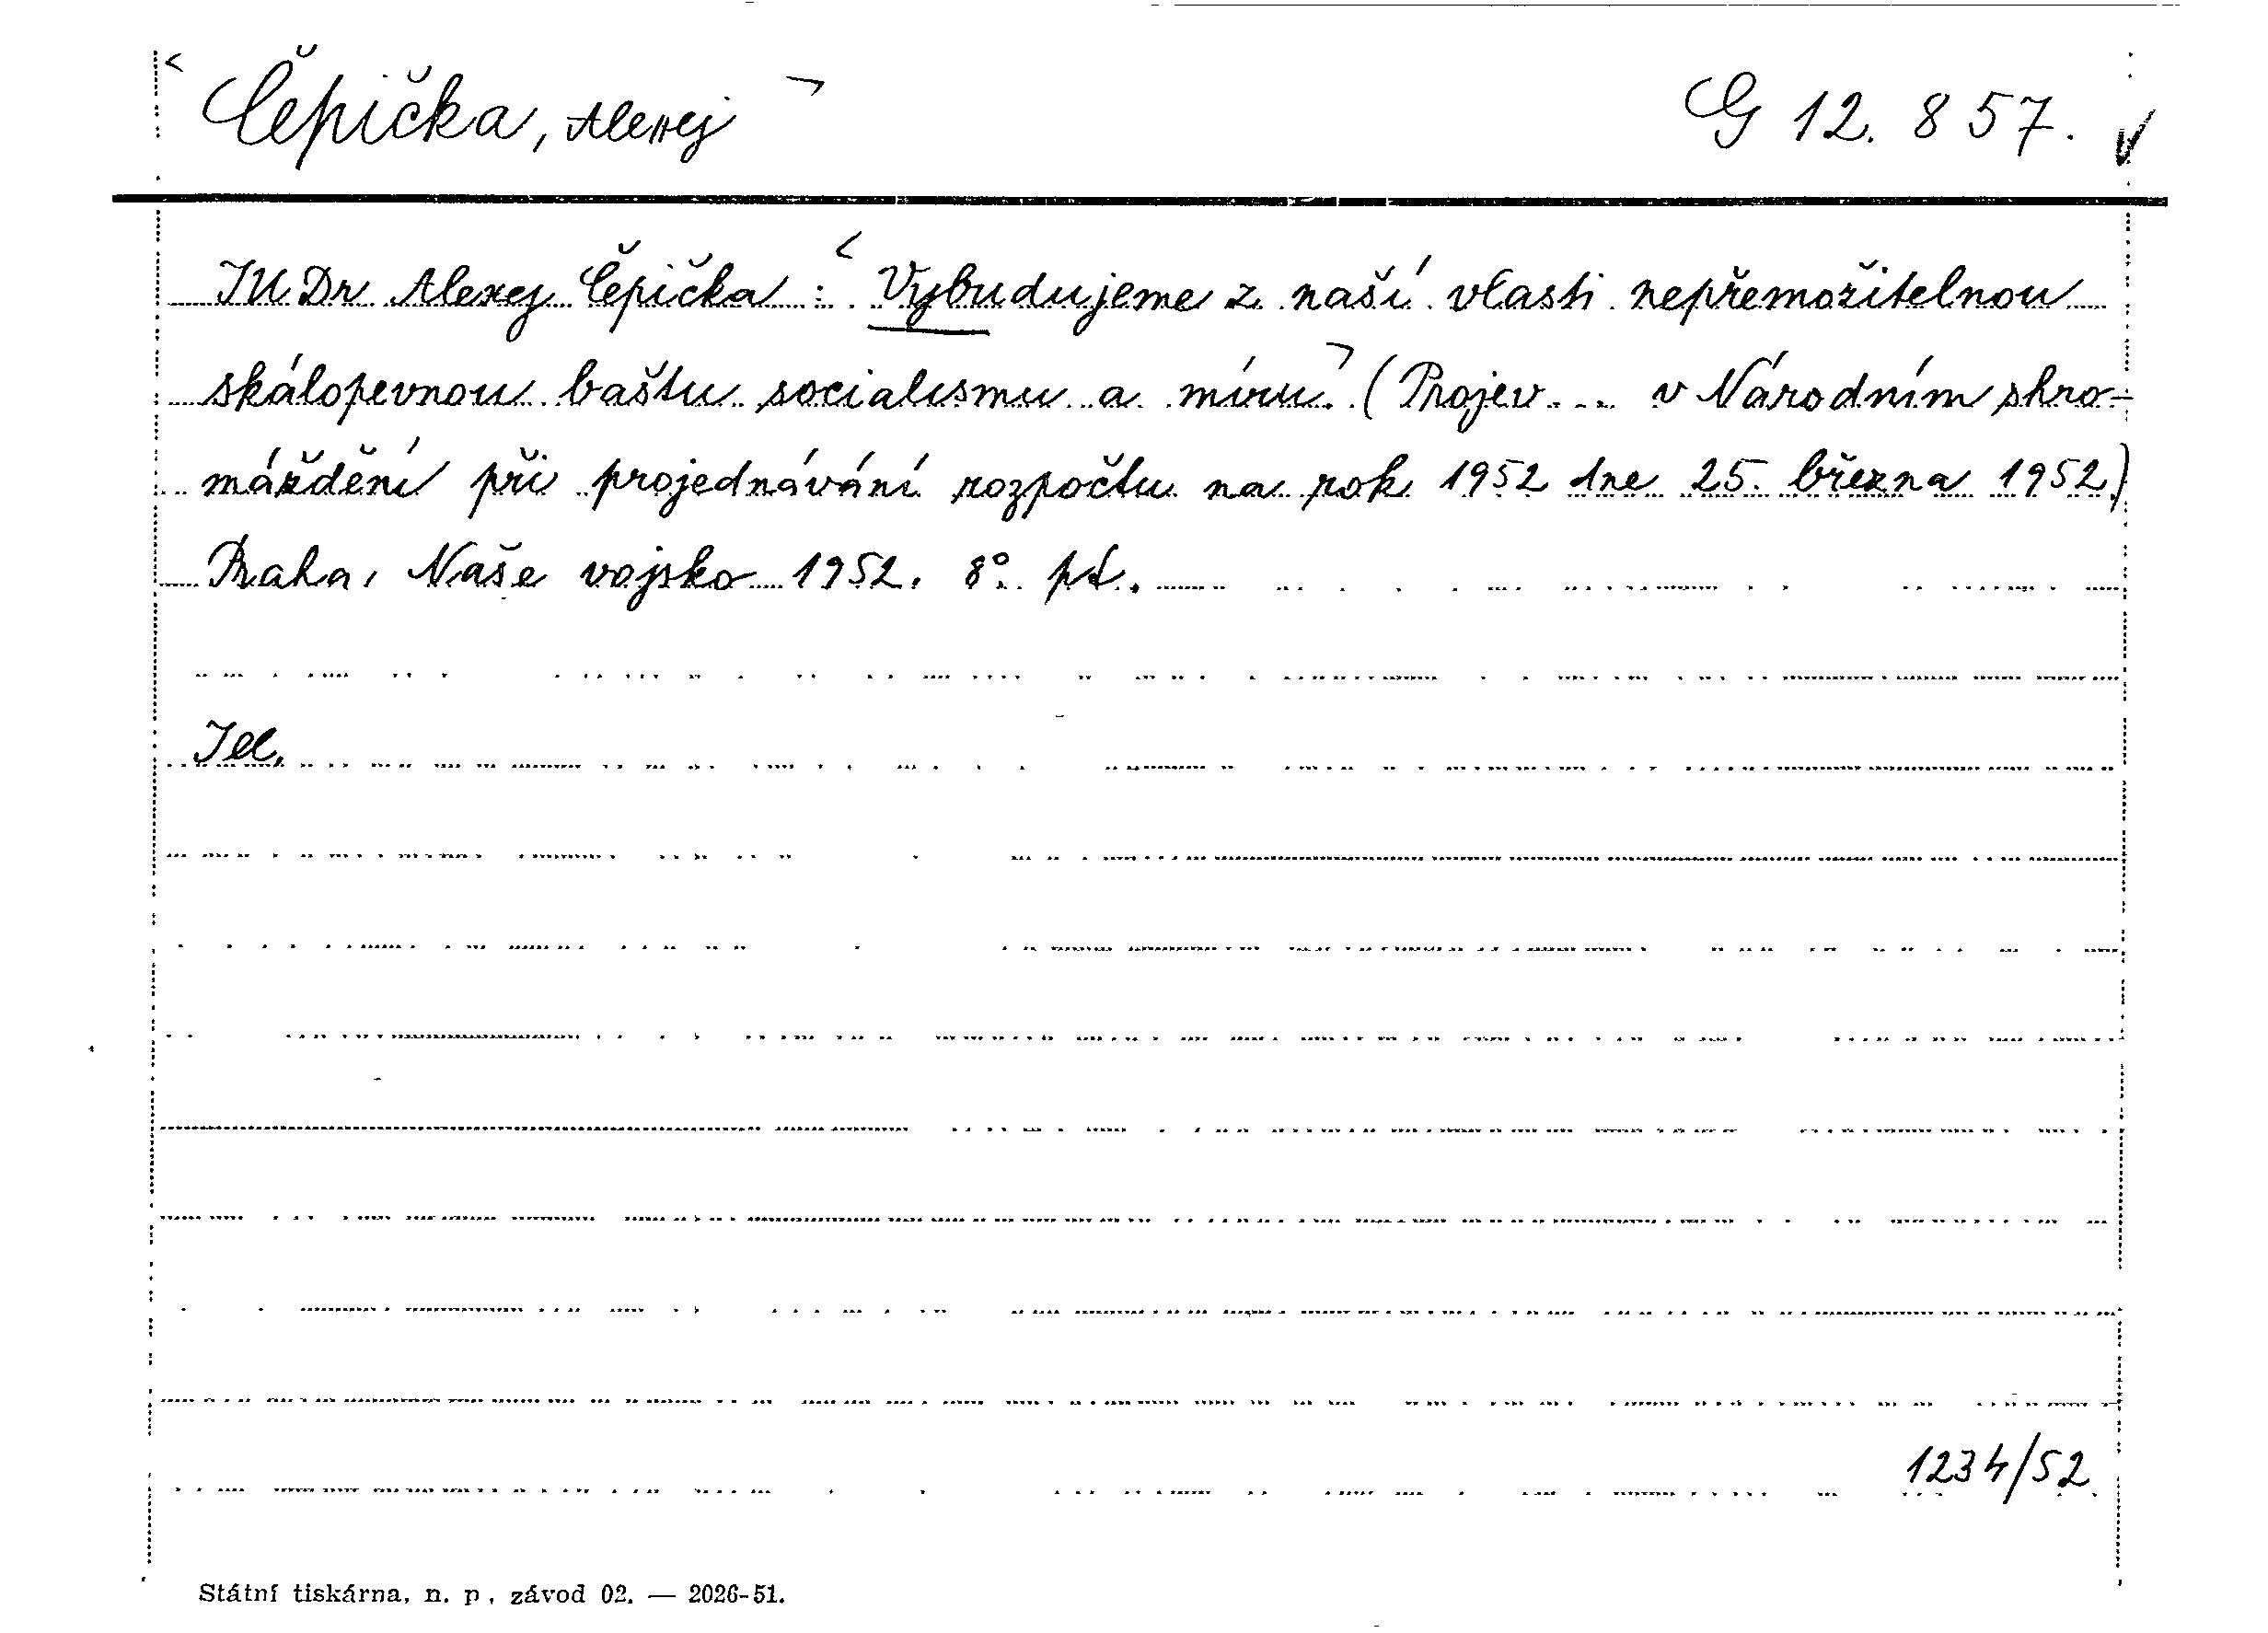 Čepička, Alexej
G 12.857.
JUDr Alexej Čepička : Vybudujeme z naší vlasti nepřemožitelnou
skálopevnou baštu socialismu a míru. (Projev... v Národním shro-
máždění při projednávání rozpočtu na rok 1952 dne 25. března 1952.)
Praha, Naše vojsko 1952. 8°. pt.
Jel.
1234/52.
Státní tiskárna, n. p., závod 02. — 2026-51.